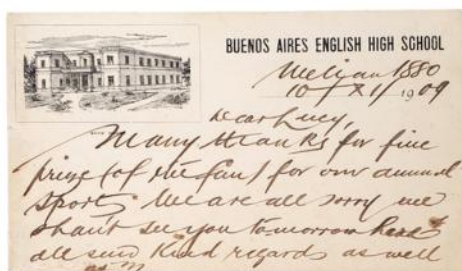 BUENOS AIRES ENGLISH HIGH SCHOOL
Melian 1880
10 / XI / 1909
Dear Lucy,
Many thanks for fine
prize (of the fan) for our annual
sports. We are all sorry we
shan't see you tomorrow
all send kind regards as well
as